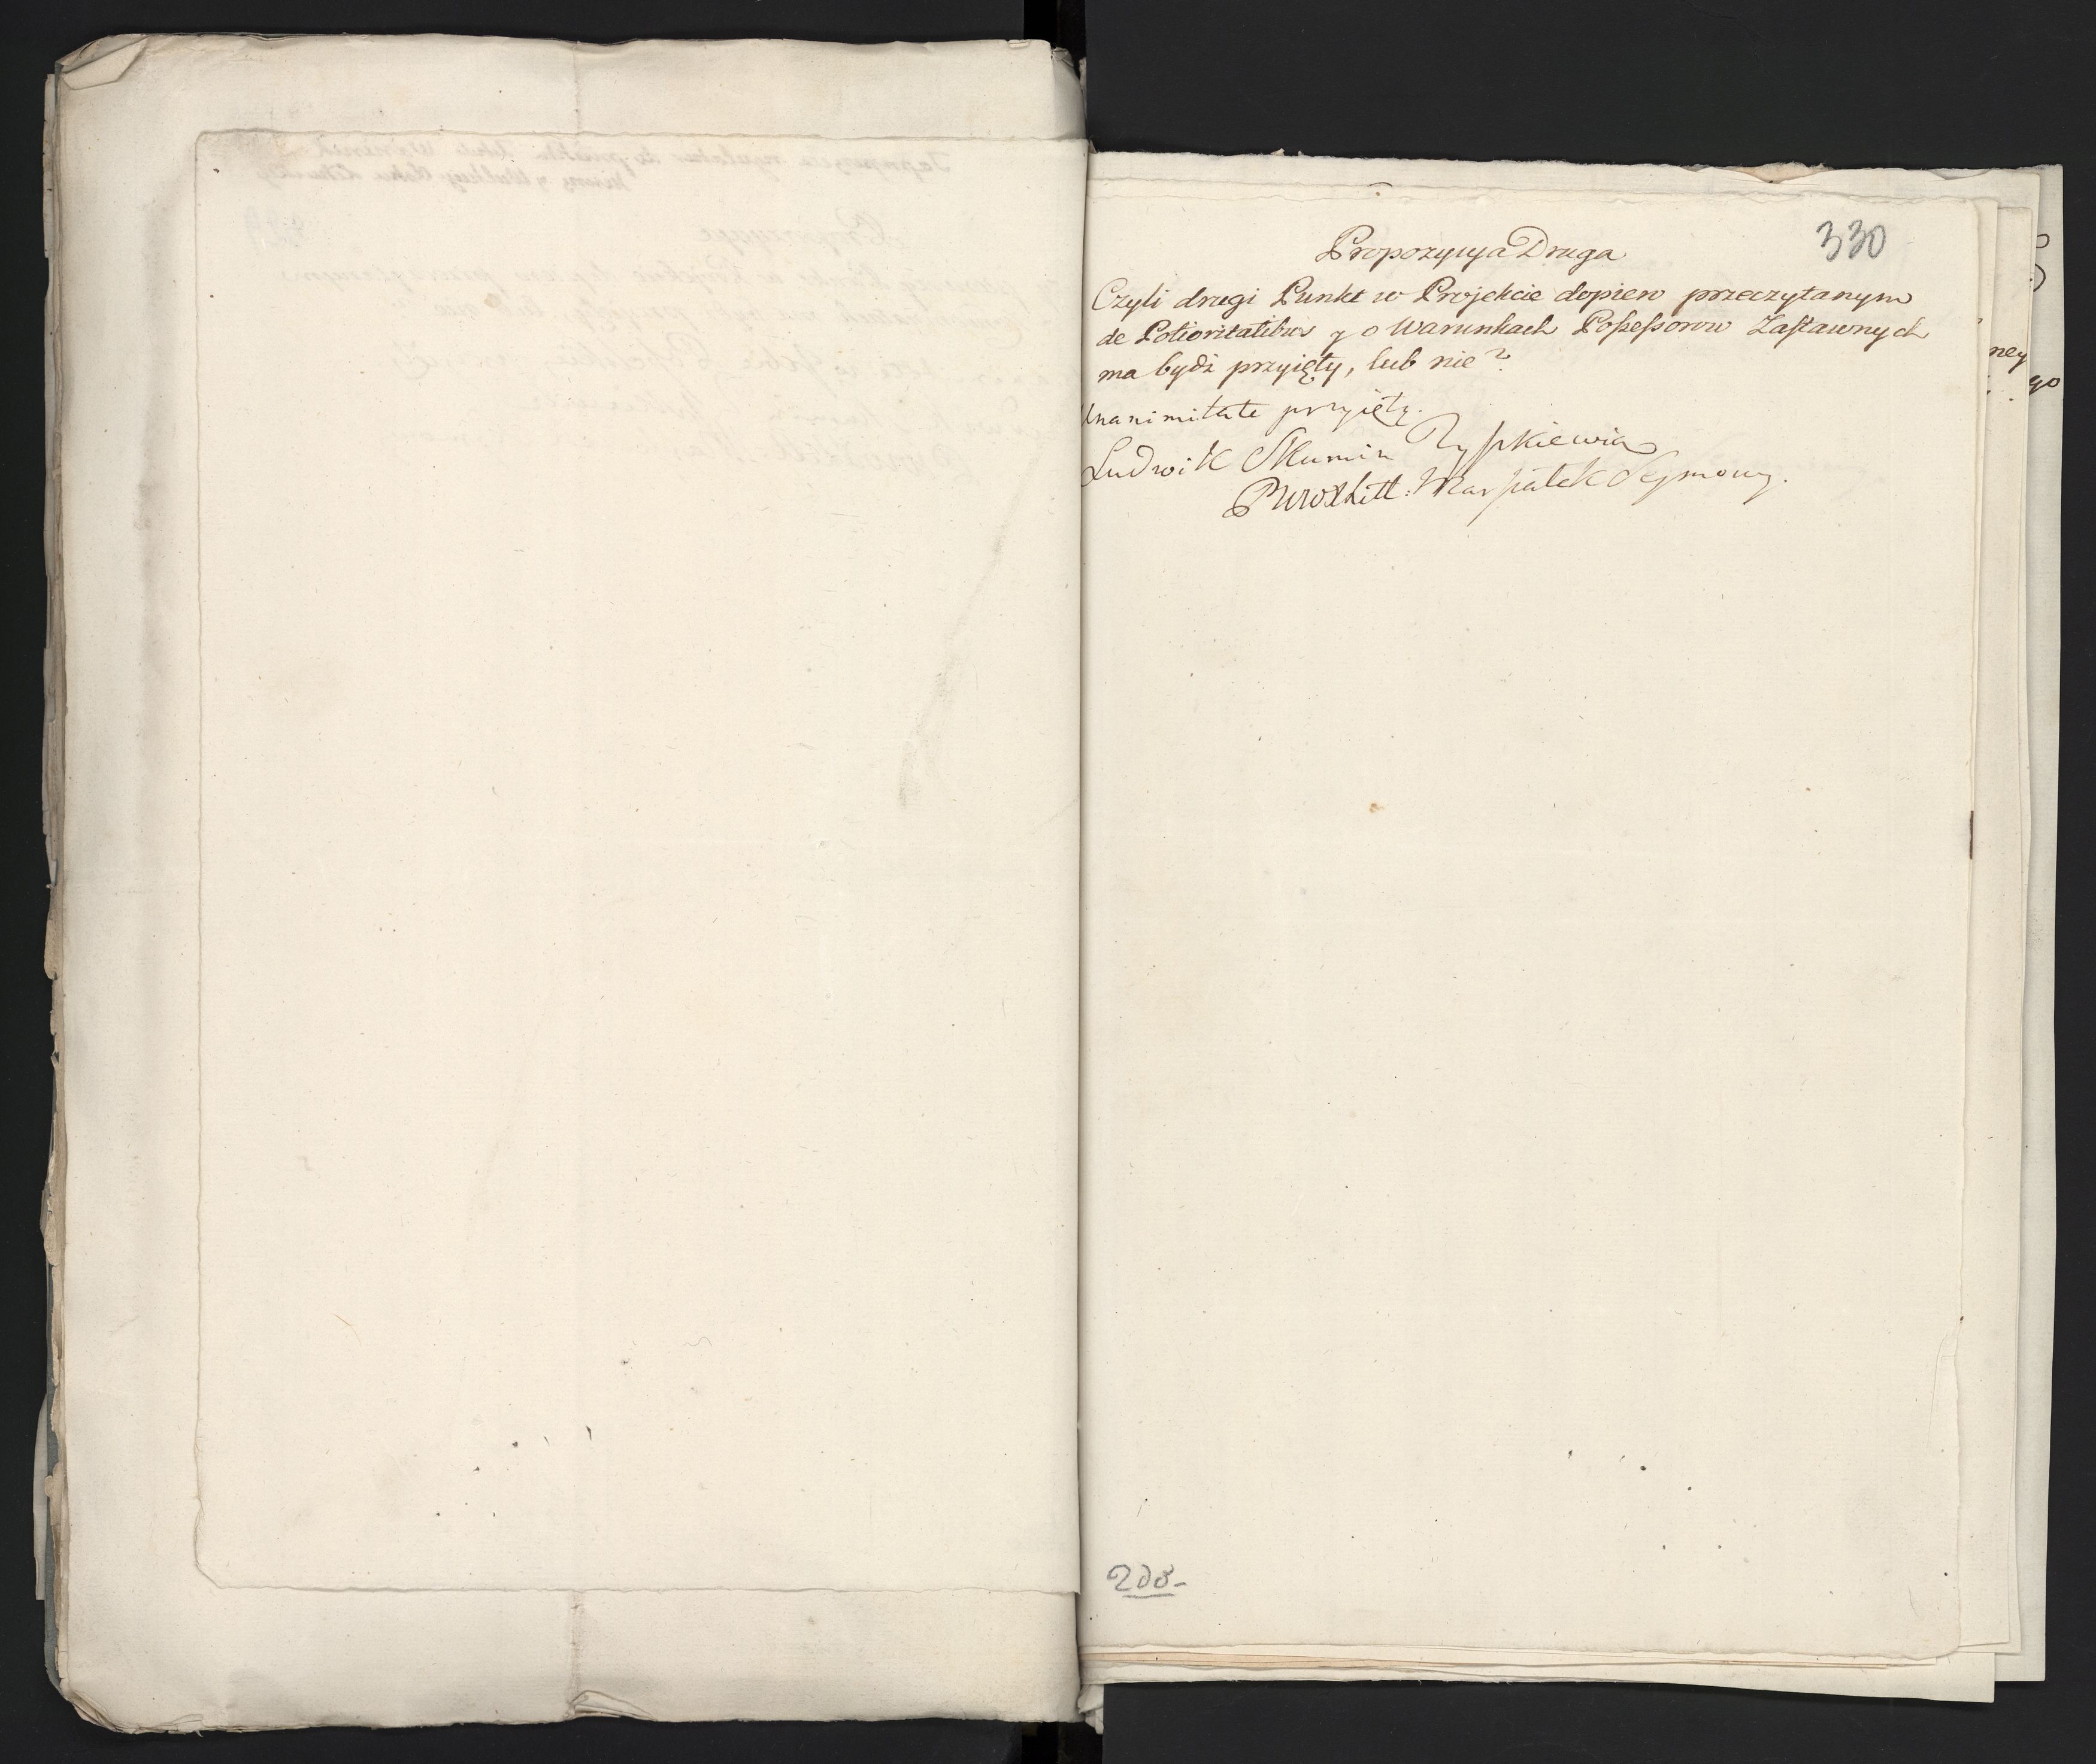 330
Propozycya Druga
Czyli drugi Punkt w Projekcie dopiero przeczytanym
de Potioritatibus y o Warunkach Possessorow Zastawnych
ma bydź przyięty, lub nie?
Unanimitate przyięty.
Ludwik Skumin Tyszkiewicz
PWoXLitt: Marszałek Seymowy.
ney
go